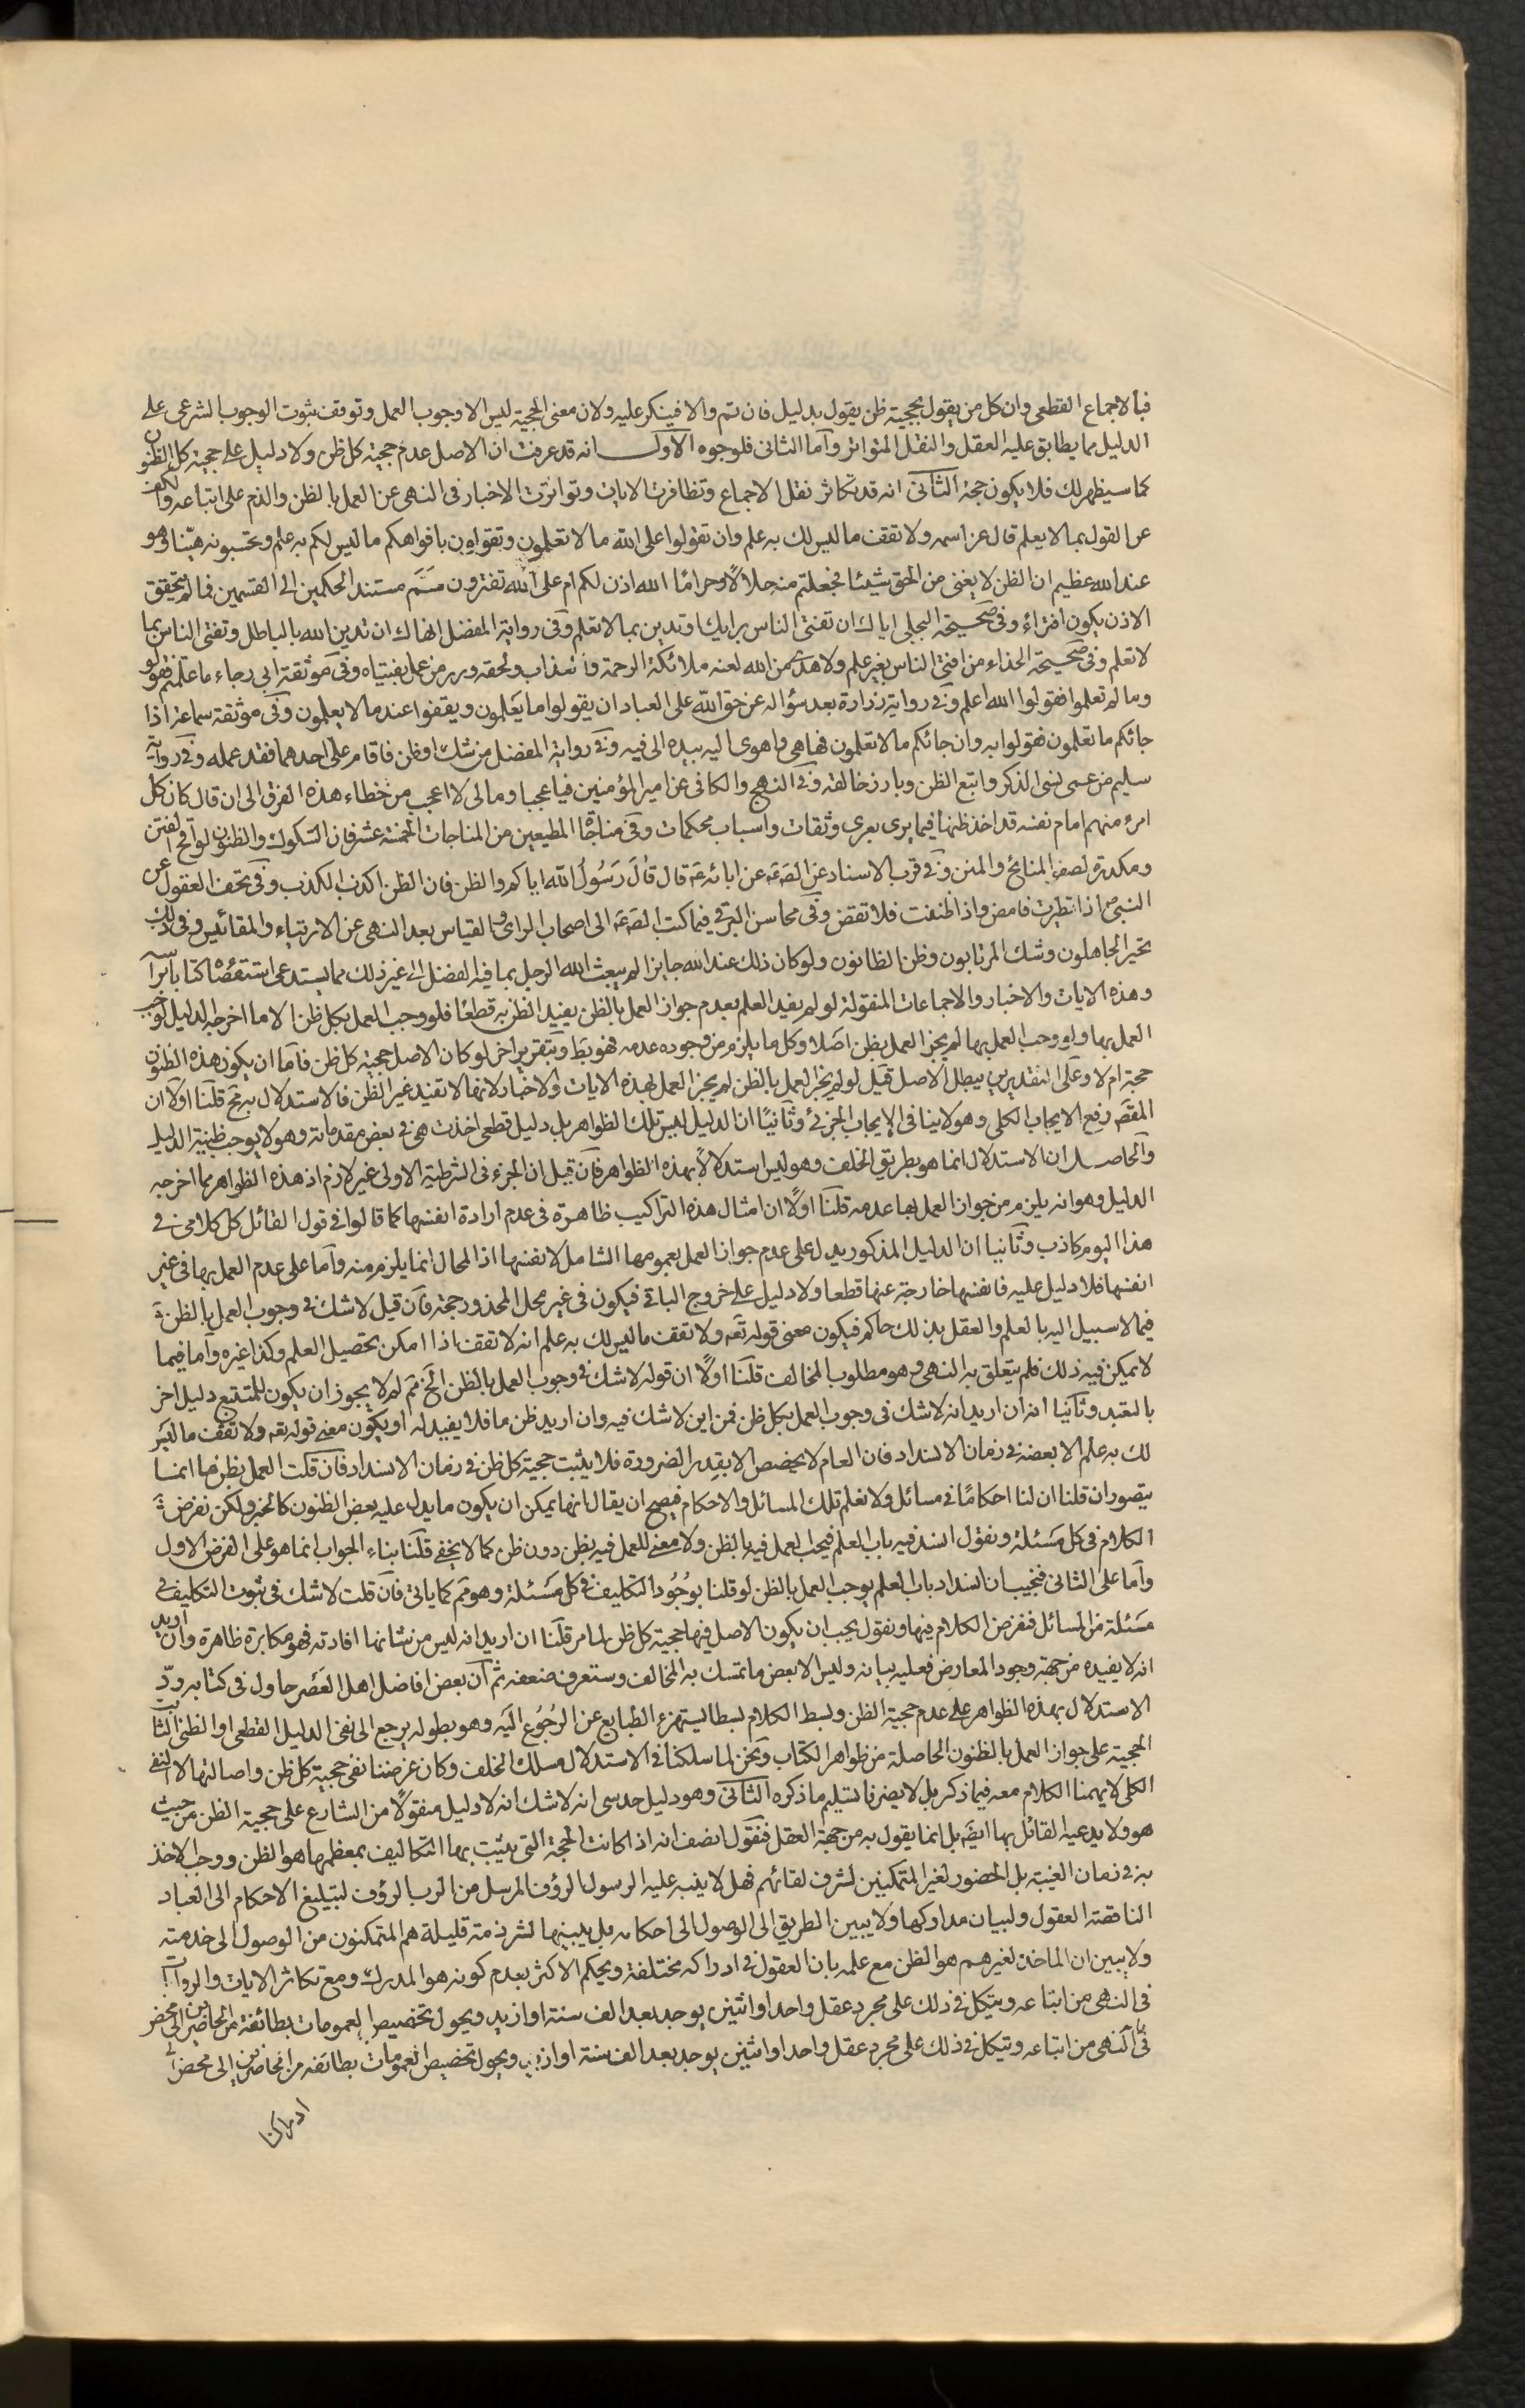 فبالاجماع القطعى وان كل من يقول بحجية ظن يقول بدليل فان تم والا فينكر عليه ولان معنى الحجية ليس الا وجوب العمل وتوقف ثبوت الوجوب الشرعى على
الدليل مما يطابق عليه العقل والنقل المتواتر وآما الثانى فلوجوه الآول انه قد عرفت ان الاصل عدم حجية كل ظن ولا دليل على حجية كل الظنون
كما سيظهر لك فلا يكون حجة الثآنى انه قد تكاثر نقل الاجماع وتظافرت الايات وتواترت الاخبار فى النهى عن العمل بالظن والذم على اتباعه والكف
عن القول بما لا يعلم قال عز اسمه ولا تقف ما ليس لك به علم وان تقولوا على الله ما لا تعلمون وتقولون بافواهكم ما ليس لكم به علم وتحسبونه هينا وهو
عند الله عظيم ان الظن لا يغنى من الحق شيئا فجعلتم منه حلالا وحراما الله اذن لكم ام على الله تفترون قسم مستند الحكمين الى القسمين فما لم يتحقق
الاذن يكون افتراء وفى صحيحة البجلى اياك ان تفتى الناس برايك او تدين بما لا تعلم وفى رواية المفضل انهاك ان تدين الله بالباطل وتفتى الناس بما
لا تعلم وفى صحيحة الحذاء من افتى الناس بغير علم ولا هدى من الله لعنه ملائكة الرحمة والعذاب ولحقه وزر من عمل بفتياه وفى موثقة ابى رجاء ما علمتم فقولوا
وما لم تعلموا فقولوا الله اعلم وفى رواية زرارة بعد سؤاله عن حق الله على العباد ان يقولوا ما يعلمون ويقفوا عند ما لا يعلمون وفى موثقة سماعة اذا
جائكم ما تعلمون فقولوا به وان جائكم ما لا تعلمون فها هى واهوى اليه بيده الى فيه وفى رواية المفضل من شك او ظن فاقام على احدهما فقد عمله وفى رواية
سليم من عمى نسى الذكر واتبع الظن وبارز خالقه وفى النهج والكافى عن امير المؤمنين فيا عجبا ومالى لا اعجب من خطاء هذه الفرق الى ان قال كان كل
امرء منهم امام نفسه قد اخذ منها فيما يرى بعرى وثقات واسباب محكمات وفى مناجاة المطيعين من المناجات الخمسة عشر فان الشكوك والظنون لواقح الفتن
ومكدرة لصفو المنائح والمنن وفى قرب الاسناد عن الصع عن ابائه ع قال قال رسول الله اياكم والظن فان الظن اكذب الكذب وفى تحف العقول عن
النبى ص اذا تطيرت فامض واذا ظننت فلا تقض وفى محاسن البرقى فيما كتب الصع الى اصحاب الراى والقياس بعد النهى عن الارتياء والمقائيس وفى ذلك
تحير الجاهلون وشك المرتابون وظن الظانون ولو كان ذلك عند الله جايزا لم يبعث الله الرجل بما فيه الفضل الى غير ذلك مما يستدعى استقصاه كتابا براسه
وهذه الايات والاخبار والاجماعات المنقولة لو لم يفيد العلم بعدم جواز العمل بالظن يفيد الظن به قطعا فلو وجب العمل بكل ظن الا ما اخرجه الدليل لوجب
العمل بها ولو وجب العمل بها لم يجز العمل بظن اصلا وكل ما يلزم من وجوده عدمه فهو بط وبتقرير اخر لو كان الاصل حجية كل ظن فآما ان يكون هذه الظنون
حجة ام لا وعلى التقديرين يبطل الاصل قيل لو لم يجز العمل بالظن لم يجز العمل بهذه الايات والاخبار لانها لا تفيد غير الظن فالاستدلال به مح قلنا اولا ان
المقصَ رفع الايجاب الكلى وهو لا ينافى الايجاب الجزئى وثآنيا ان الدليل ليس تلك الظواهر بل دليل قطعى اخذت هى فى بعض مقدماته وهو لا يوجب ظنية الدليل
والحاصل ان الاستدلال انما هو بطريق الخلف وهو ليس استدلالا بهذه الظواهر فآن قيل ان الجزء فى الشرطية الاولى غير لازم اذ هذه الظواهر مما اخرجه
الدليل وهو انه يلزم من جواز العمل بها عدمه قلنآ اولا ان امثال هذه التراكيب ظاهرة فى عدم ارادة انفسها كما قالوا فى قول القائل كل كلامى فى
هذا اليوم كاذب وثآنيا ان الدليل المذكور يدل على عدم جواز العمل بعمومها الشامل لانفسها اذ المحال انما يلزم منه وآما على عدم العمل بها فى غير
انفسها فلا دليل عليه فانفسها خارجة عنها قطعا ولا دليل على خروج الباقى فيكون فى غير محل المحذور حجة فآن قيل لا شك فى وجوب العمل بالظن فى
فيما لا سبيل اليه بالعلم والعقل بذلك حاكم فيكون معنى قوله تعه ولا تقف ما ليس لك به علم انه لا تقف اذا امكن تحصيل العلم وكذا غيره وآما فيما
لا يمكن فيه ذلك فلم يتعلق به النهى وهو مطلوب المخالف قلنآ اولا ان قوله لا شك فى وجوب العمل بالظن الخ مم لم لا يجوز ان يكون المتبع دليل اخر
بالتعبد وثآنيا انه ان اريد انه لا شك فى وجوب العمل بكل ظن فمن اين لا شك فيه وان اريد ظن ما فلا يفيد له اذ يكون معنى قوله تعه ولا تقف ما ليس
لك به علم الا بعضه فى زمان الانسداد فان العام لا يخصص الا بقدر الضرورة فلا يثبت حجية كل ظن فى زمان الانسداد فان قلت العمل بظن ما انما
يتصور ان قلنا ان لنا احكاما فى مسائل ولا نعلم تلك المسائل والاحكام فيصح ان يقال انها يمكن ان يكون ما يدل عليه بعض الظنون كالخبر ولكن نفرض
الكلام فى كل مسئلة ونقول انسد فيه باب العلم فيجب العمل فيه بالظن ولا معنى للعمل فيه بظن دون ظن كما لا يخفى قلنآ بناء الجواب انما هو على الفرض الاول
وآما على الثانى فنجيب ان انسداد باب العلم يوجب العمل بالظن لو قلنا بوجود التكليف فى كل مسئلة وهو مم كما ياتى فآن قلت لا شك فى ثبوت التكليف فى
مسئلة من المسائل فنفرض الكلام فيها ونقول يجب ان يكون الاصل فيها حجية كل ظن لما مر قلنآ ان اريد انه ليس من شانها افادته فهو مكابرة ظاهرة وان اريد
انه لا يفيده من جهة وجود المعارض فعليه بيانه وليس الا بعض ما تمسك به المخالف وستعرف ضعفه ثم آن بعض افاضل اهل العصر حاول فى كتابه رد
الاستدلال بهذه الظواهر على عدم حجية الظن وبسط الكلام بسطا يشمئز الطبايع عن الرجوع اليه وهو بطوله يرجع الى نفى الدليل القطعى او الظنى الثابت
الحجية على جواز العمل بالظنون الحاصلة من ظواهر الكتاب ونحن لما سلكنا فى الاستدلال مسلك الخلف وكان غرضنا نفى حجية كل ظن واصالتها لا النفى
الكلى لا يهمنا الكلام معه فيما ذكر بل لا يضرنا تسليم ما ذكره الثآنى وهو دليل حدسى انه لا شك انه لا دليل منقولا من الشارع على حجية الظن من حيث
هو ولا يدعيه القائل بها ايضَ بل انما يقول به من جهة العقل فنقول انصف انه اذا كانت الحجة التى يثبت بها التكاليف بمعظمها هو الظن ووجب الاخذ
به فى زمان الغيبة بل الحضور لغير المتمكنين لشرف لقائهم فهل لا ينبه عليه الرسول الرؤف المرسل من الرب الرؤف لتبليغ الاحكام الى العباد
الناقصة العقول ولبيان مداركها ولا يبين الطريق الى الوصول الى احكامه بل يبينها لشرذمة قليلة هم المتمكنون من الوصول الى خدمته
ولا يبين ان الماخذ لغيرهم هو الظن مع علمه بان العقول فى ادراكه مختلفة ويحكم الاكثر بعدم كونه هو المدرك ومع تكاثر الايات والروايات
فى النهى من اتباعه ويتكل فى ذلك على مجرد عقل واحد او اثنين يوجد بعد الف سنة او ازيد ويحول تخصيص العمومات بطائفة من الحاضرين الى محض
فى النهى من اتباعه ويتكل فى ذلك على مجرد عقل واحد او اثنين يوجد بعد الف سنة او ازيد ويحول تخصيص العمومات بطائفة من الحاضرين الى محض
ادراكنا